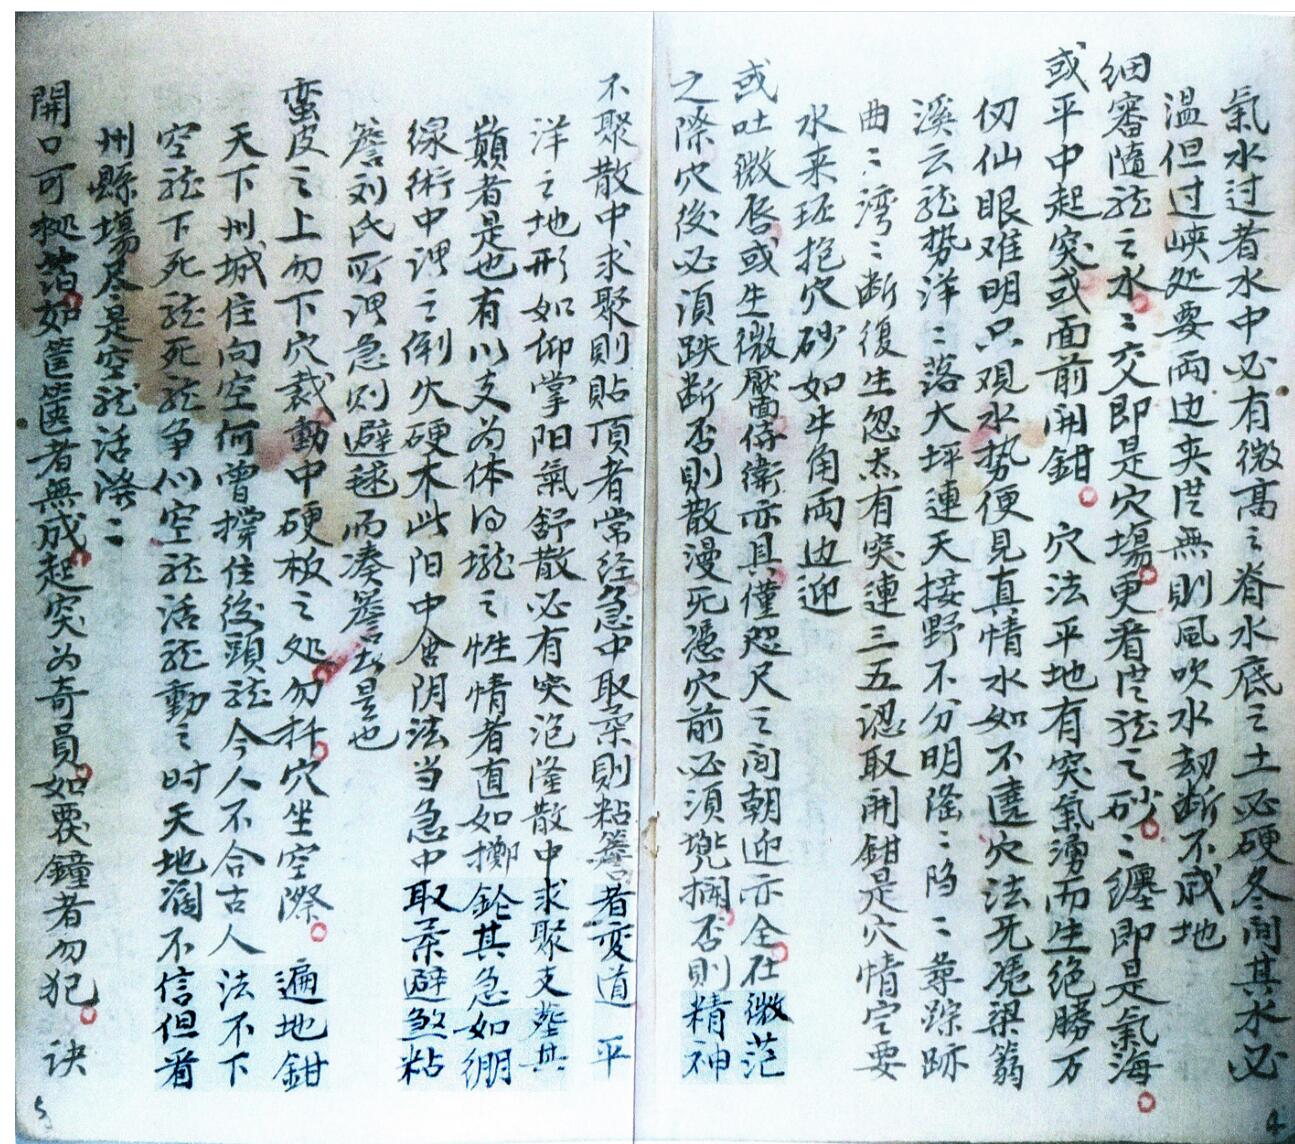 氣水过者水中必有微髙之脊水底之土必硬冬间其水必
温但过峡处要两边夹從無則風吹水劫断不成地
细審隨龍之水〻交即是穴塲更看從龍之砂〻纒即是氣海
或平中起突或面前開鉗 穴法平地有突氣湧而生绝勝万
仞仙眼难明只观水势便見真情水如不遶穴法无凴梁箬
溪云龍势洋〻落大坪連天接野不分明隆〻陷〻尋踪跡
曲〻湾〻断復生忽然有突連三五認取開鉗是穴情穴要
水来环抱穴砂如牛角両边迎
或吐微唇或生微靨面侍衛亦具僅咫尺之间朝迎亦全在微茫
之際穴後必須跌断否則散漫无憑穴前必須兠攔否則精神
不聚散中求聚則貼頂者常经急中取柔則粘簷者变道 平
洋之地形如仰掌阳氣舒散必有突泡隆散中求聚支𦵏其
巔者是也有以支为体得壠之性情者直如擲鈆其急如绷
線術中谓之倒火硬木此阳中含阴法当急中取柔避煞粘
簷刘氏所谓急则避毬而凑簷去是也
蛮皮之上勿下穴裁動中硬板之处勿扦穴坐空際 遍地鉗
天下州城住向空何曾撑住後頭龍今人不合古人法不下
空龍下死龍死龍争似空龍活龍動之时天地濶不信但看
州縣塲尽是空龍活潑〻
開口可穵如筐篋者無成起突为奇員如覆鐘者勿犯 诀
5
4